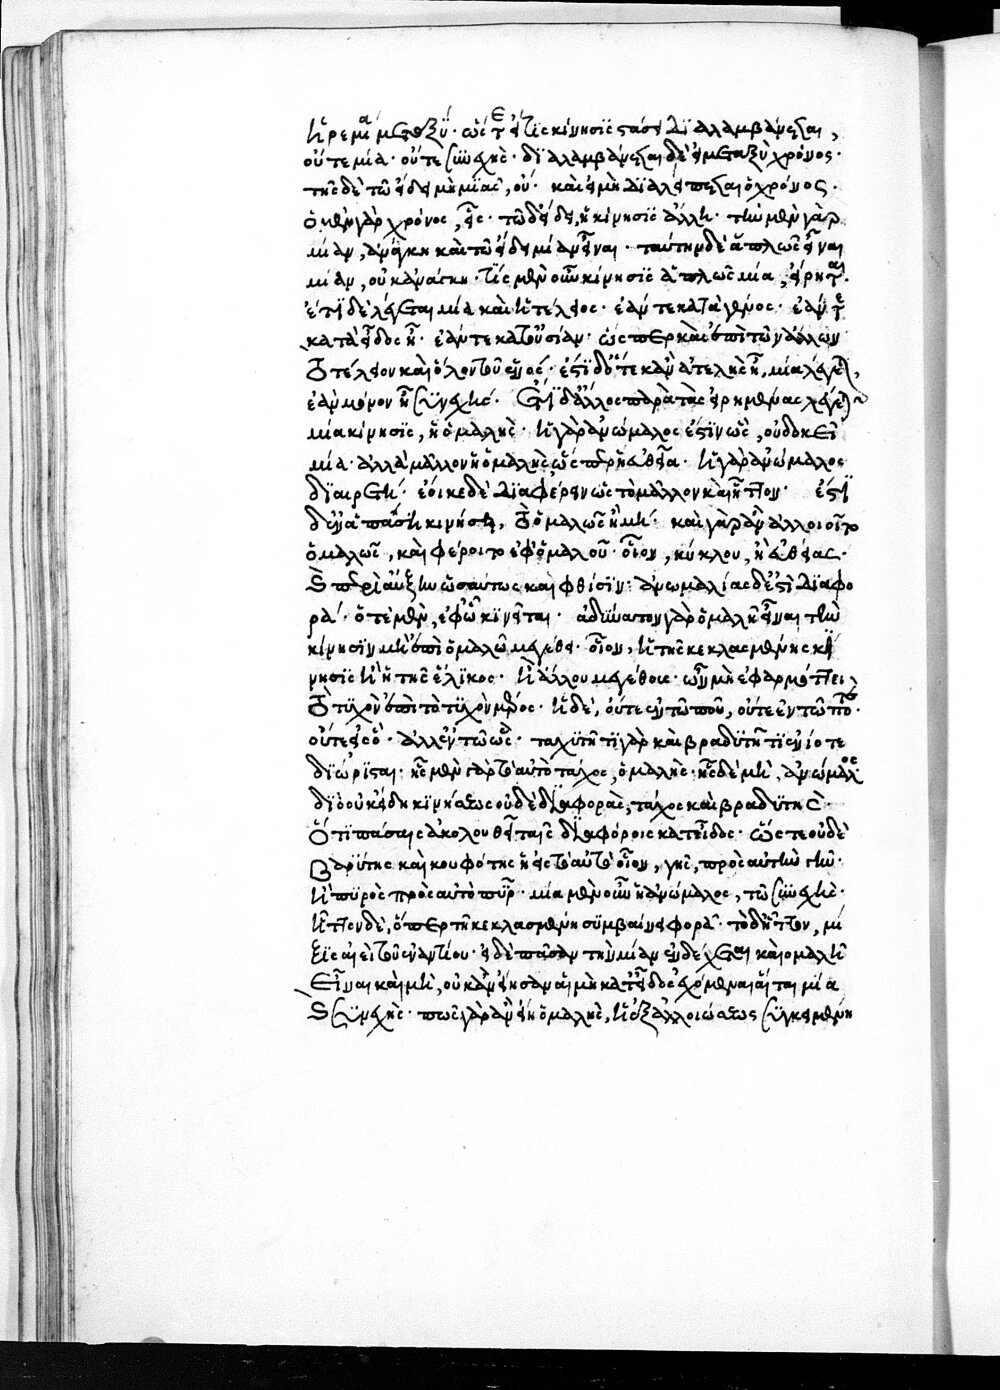 ἠρεμία μεταξύ· ὥστε εἴ τις κίνησις στάσει διαλαμβάνεται,
οὔτε μία· οὔτε συνεχής· διαλαμβάνεται δὲ εἰ μεταξὺ χρόνος·
τῆς δὲ τῶ εἴδει μὴ μιᾶς, οὐ· καὶ εἰ μὴ διαλείπεται ὁ χρόνος·
ὁ μὲν γὰρ χρόνος, εἷς· τῶ δ' εἴδει, ἡ κίνησις ἄλλη· τὴν μὲν γὰρ
μίαν, ἀνάγκη καὶ τῶ εἴδει μίαν εἶναι· ταύτην δὲ ἁπλῶς εἶναι
μίαν, οὐκ ἀνάγκη· τίς μὲν οὖν κίνησις ἁπλῶς μία, εἴρηται·
ἔτι δὲ λέγεται μία καὶ ἡ τέλειος· ἐάν τε κατὰ γένος· ἐάν τε
κατὰ εἶδος ᾖ· ἐάν τε κατ' οὐσίαν· ὥσπερ καὶ ἐπὶ τῶν ἄλλων
τὸ τέλειον καὶ ὅλον τοῦ ἑνός· ἔστι δ' ὅτε κἂν ἀτελὴς ᾖ, μία λέγεται,
ἐὰν μόνον ᾖ συνεχής· ἔτι δ' ἄλλος παρὰ τὰς εἰρημένας λέγεται
μία κίνησις, ἡ ὁμαλής· ἡ γὰρ ἀνώμαλος ἔστιν ὡς, οὐ δοκεῖ
μία· ἀλλὰ μᾶλλον ἡ ὁμαλὴς, ὥσπερ ἡ εὐθεῖα· ἡ γὰρ ἀνώμαλος
διαιρετή· ἔοικε δὲ διαφέρειν ὡς τὸ μᾶλλον καὶ ἧττον· ἔστι
δ' ἐν ἁπάση κινήσει, τὸ ὁμαλῶς ἢ μή· καὶ γὰρ ἂν ἀλλοιοῖτο
ὁμαλῶς, καὶ φέροιτο ἐφ' ὁμαλοῦ· οἷον, κύκλου, ἢ εὐθείας·
καὶ περὶ αὔξην ὡσαύτως καὶ φθίσιν· ἀνωμαλίας δ' ἐστὶ διαφο
ρά· ὁτὲ μὲν, ἐφ' ὧ κινεῖται· ἀδύνατον γὰρ ὁμαλῆ εἶναι τὴν
κίνησιν μὴ ἐπὶ ὁμαλῶ μεγέθει· οἷον, ἡ τῆς κεκλασμένης κί
νησις ἢ ἡ τῆς ἕλικος· ἢ ἄλλου μεγέθους· ὧν μὴ ἐφαρμόττει
τὸ τυχὸν ἐπὶ τὸ τυχὸν μέρος· ἡ δὲ, οὔτε ἐν τῶ ποῦ, οὔτε ἐν τῶ πότε·
οὔτε εἰς ὅ· ἀλλ' ἐν τῶ ὥς· ταχυτῆτι γὰρ καὶ βραδυτῆτι ἐνίοτε
διώρισται· ἧς μὲν γὰρ τὸ αὐτὸ τάχος, ὁμαλής· ἧς δὲ μὴ, ἀνώμαλος·
διὸ οὐκ εἴδη κινήσεως οὐδὲ διαφοραὶ, τάχος καὶ βραδυτής·
ὅτι πάσαις ἀκολουθεῖ ταῖς διαφόροις κατ' εἶδος· ὥστε οὐδὲ
βαρύτης καὶ κουφότης ἡ εἰς τὸ αὐτὸ οἷον, γῆς, πρὸς αὐτὴν γῆν·
ἢ πυρὸς πρὸς αὐτὸ πῦρ· μία μὲν οὖν ἡ ἀνώμαλος, τῶ συνεχής·
ἧττον δὲ, ὅπερ τῆ κεκλασμένη συμβαίνει φορᾶ· τὸ δ' ἧττον, μί
ξις αἰεὶ τοῦ ἐναντίου· εἰ δὲ πᾶσαν τὴν μίαν ἐνδέχεται καὶ ὁμαλῆ
εἶναι καὶ μὴ, οὐκ ἂν εἴησαν αἱ μὴ κατ' εἶδος ἐχόμεναι αἱ αὐταὶ μία
καὶ συνεχής· πῶς γὰρ ἂν εἴη ὁμαλὴς, ἡ ἐξ ἀλλοιώσεως συγκειμένη